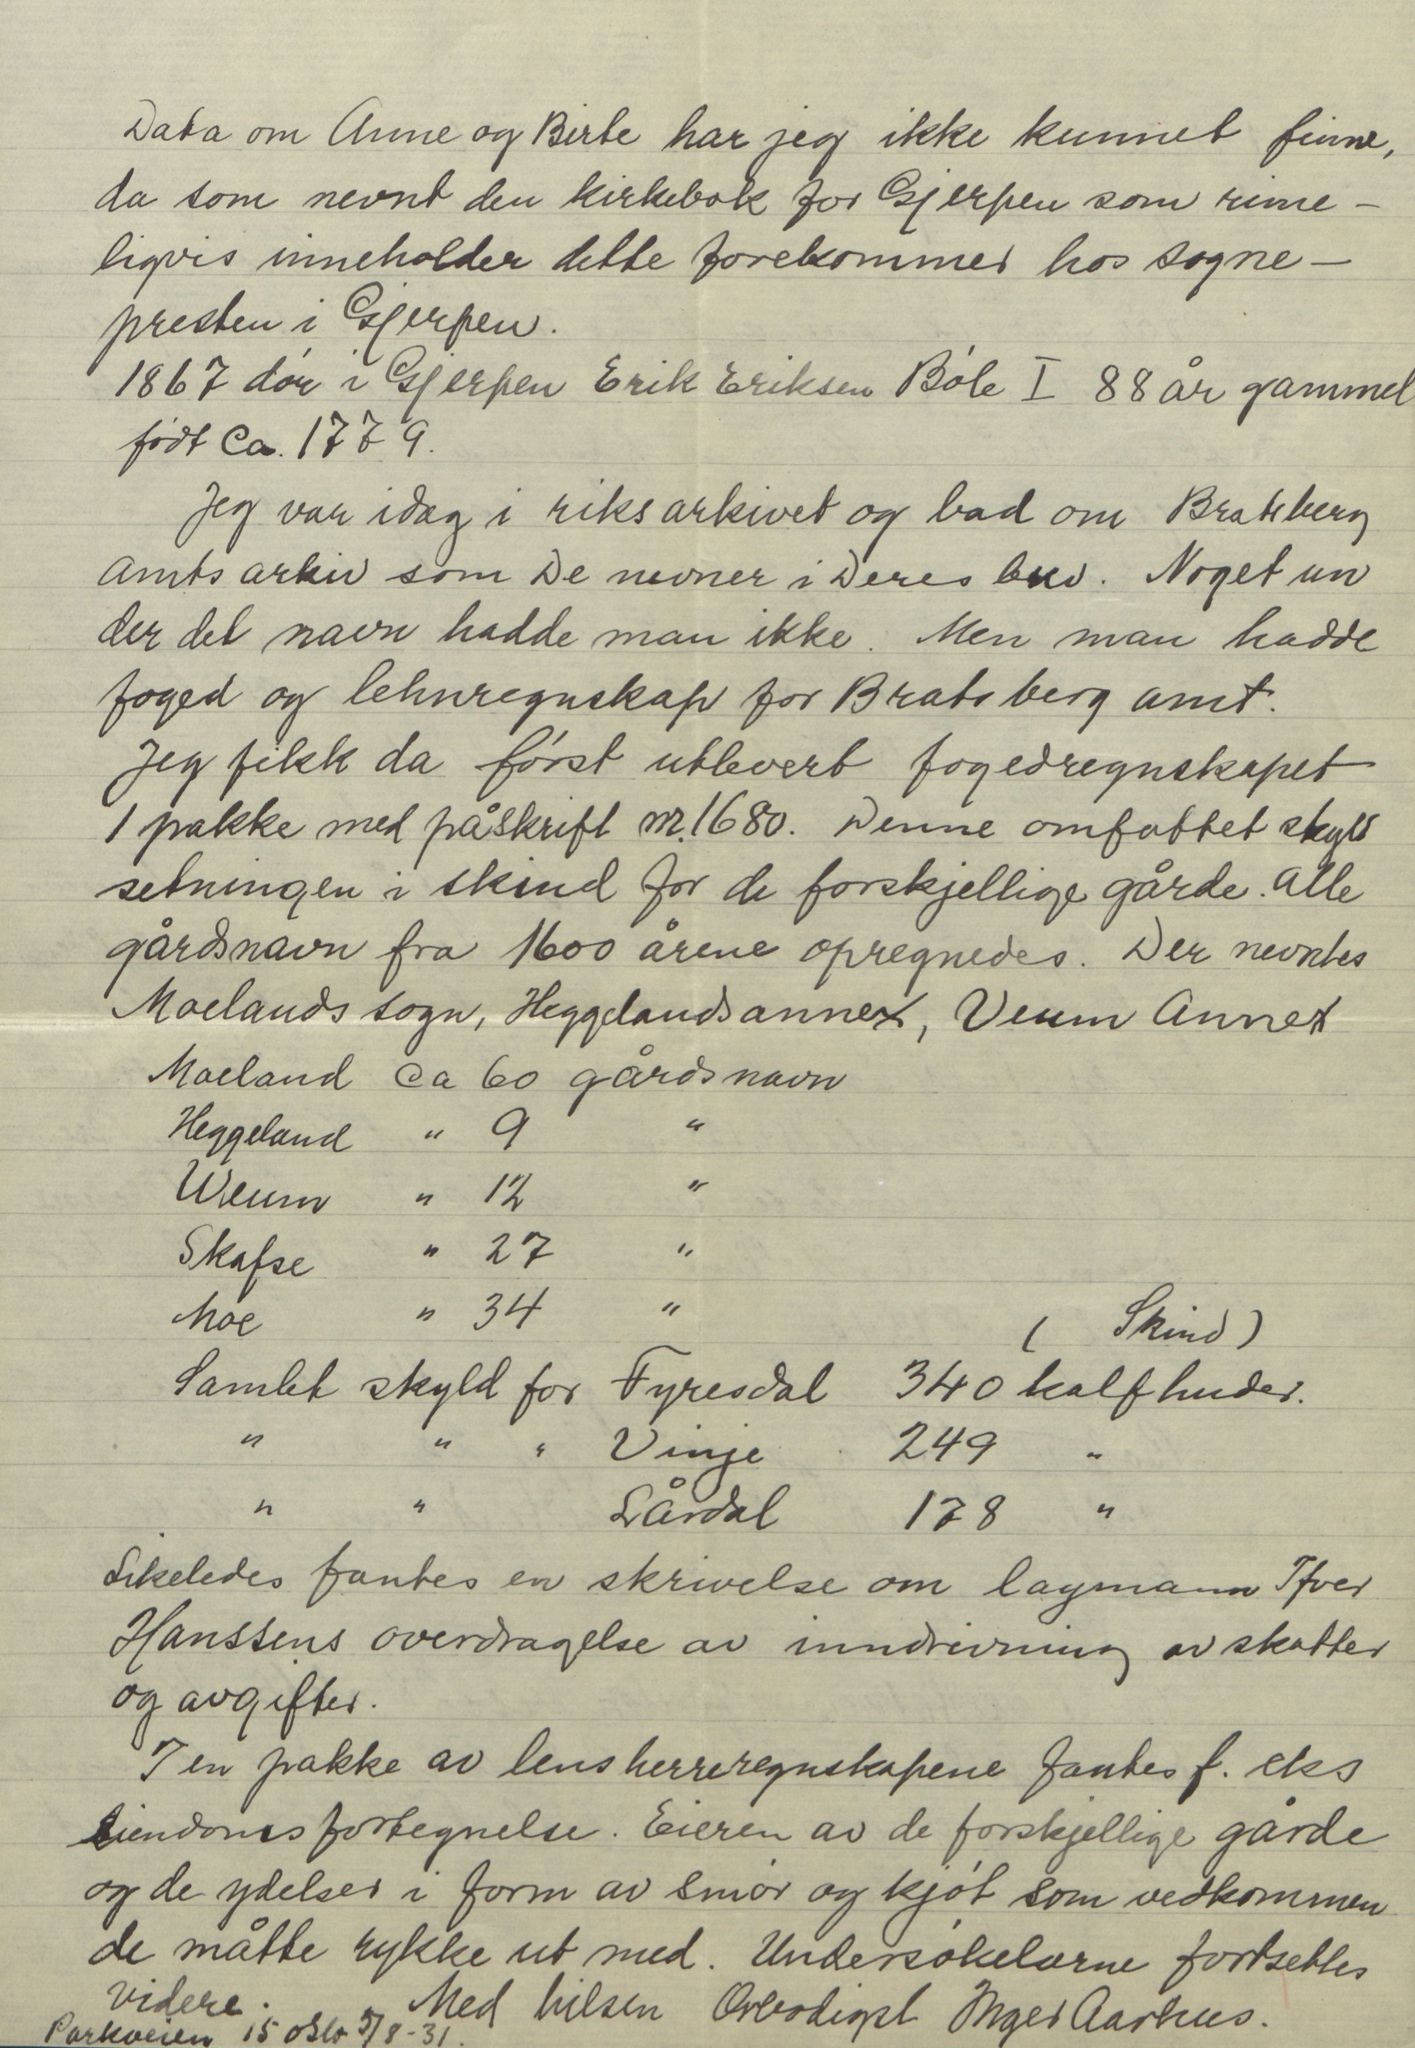 Data om Anne og Birte har jeg ikke kunnet finne,
da som nevnt den kirkebok for Gjerpen som rime-
ligvis inneholder dette forekommer hos sogne-
presten i Gjerpen.
1867 dør i Gjerpen Erik Eriksen Bøle I 88 år gammel
født ca. 1779.
Jeg var idag i riksarkivet og bad om Bratsberg
amts arkiv som De nevner i Deres brev. Noget un
der det navn hadde man ikke. Men man hadde
foged og lehnregnskap for Bratsberg amt.
Jeg fikk da først utlevert fogedregnskapet
1 pakke med påskrift nr. 1680. Denne omfattet skyld
setningen i skind for de forskjellige gårde. Alle
gårdsnavn fra 1600 årene opregnedes. Der nevntes
Moelands sogn, Heggelandsannex, Veum Annex
Moeland ca 60 gårdsnavn
Heggeland " 9 "
Weum " 12 "
Skafse " 27 "
Moe " 34 "
( Skind)
Samlet skyld for Fyresdal 340 kalfhuder.
" " " Vinje 249 "
" " Lårdal 178 "
Likeledes fantes en skrivelse om lagmann Ifver
Hanssens overdragelse av inndrivning av skatter
og avgifter.
I en pakke av lensherreregnskapene fantes f. eks
Eiendomsfortegnelse. Eieren av de forskjellige gårde
og de ydelser i form av smør og kjøt som vedkommen
de måtte rykke ut med. Undersøkelserne fortsettes
videre. Med hilsen Ærbødigst Inger Aarhus.
Parkveien 15 Oslo 5/8-31.